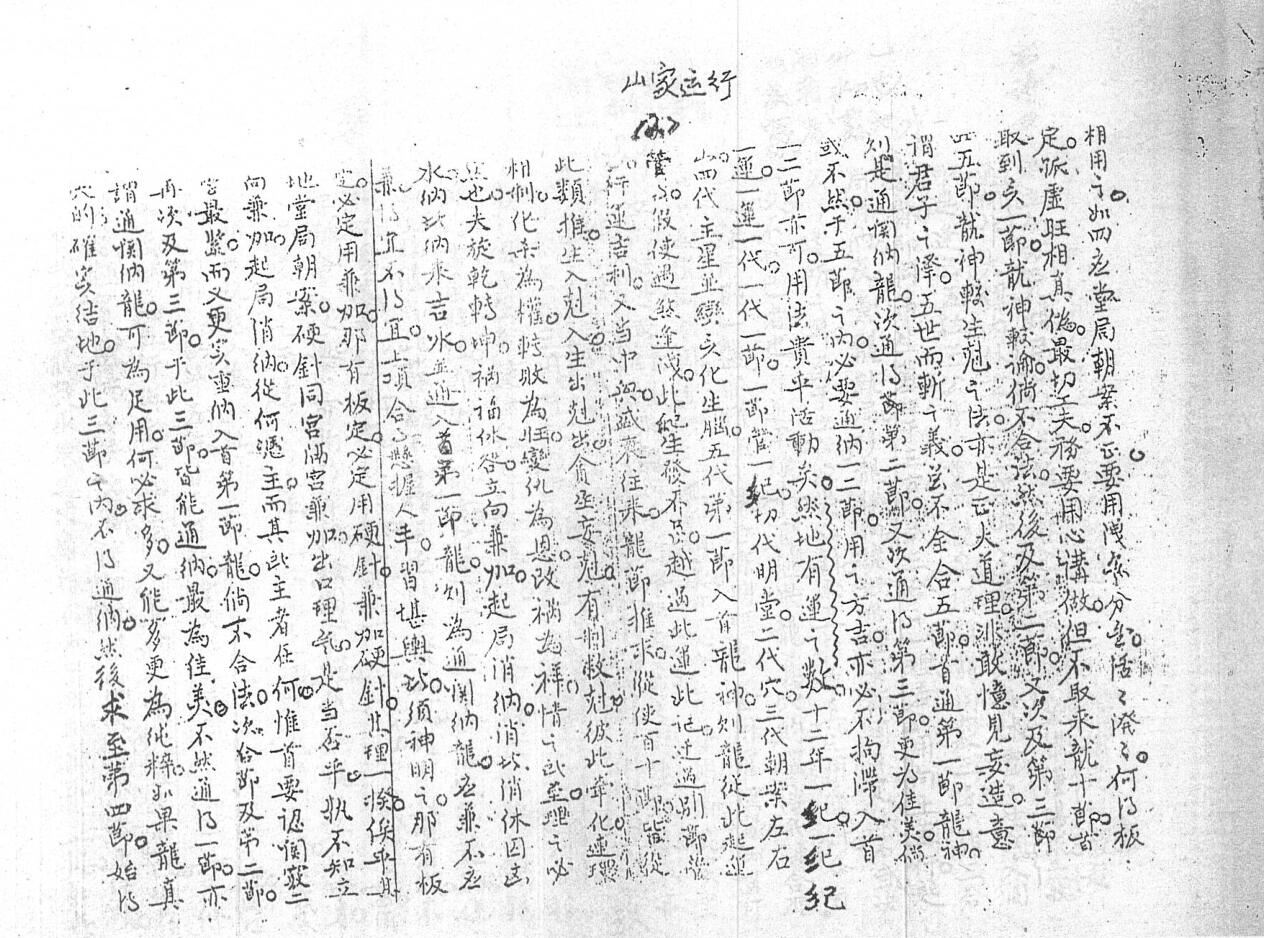 山家运行
相用之如四应堂局朝案不正要用活泼何得板
定孤虚旺相真伪最切工夫务要用心讲做但不取来龙十节首
取到亥一节龙神较论倘不合法然后及第二节又次及第三节
四五节龙神较生尅之法亦是正大道理非敢憶見妄造意
谓君子之泽五世而斩之義並不全合五节首通第一节龙神
则是通関纳龙次通得节第二节又次通得第三节更为佳美倘
或不然于五节之内必要通纳一二节用之方吉亦必不拘滞入首
一二节亦可用法贵乎活動矣然地有運之数十二年一纪一纪
一運一運一代一代一节一节管一纪切代明堂二代穴三代朝案左右
山四代主星並变亥化生脑五代弟一节入首龙神则龙从此起運
管假使遇煞逢此越過此運此记迁過别节管
行運吉利又当中與盛衰往来龙节推求縱使百十节皆從
此類推生入尅入生出尅出貪生妄尅有制救刻彼此牵化連環
相制化杀为權轉敗为旺变仇为恩改祸为祥惜之此至理之必
然也夫旋乾轉坤祸福休咎立向兼加起局消纳消此消休囚
水纳此纳来吉水並通入首第一节龙则为通関纳龙应兼不应
兼得宜不得宜上項合了懸握人手習堪輿此须神明之那有板
定必定用兼加那有板定必定用硬針兼加硬針其理一挨俟乎其
地堂局朝案硬針同宫满宫兼加出口理气是当否乎孰不知立
向兼加起局消纳從何憑主而其此主者任何惟首要認
最紧而又更亥重纳入首第一节龙倘不合法次合节及第二节
再次及第三节乎此三节皆能通纳最为佳美不然通得一节亦
謂通関纳龙可为足用何必求多又能多更为纯粹如果龙真
穴的確实结地于此三节之内不得通纳然後求至第四节始得